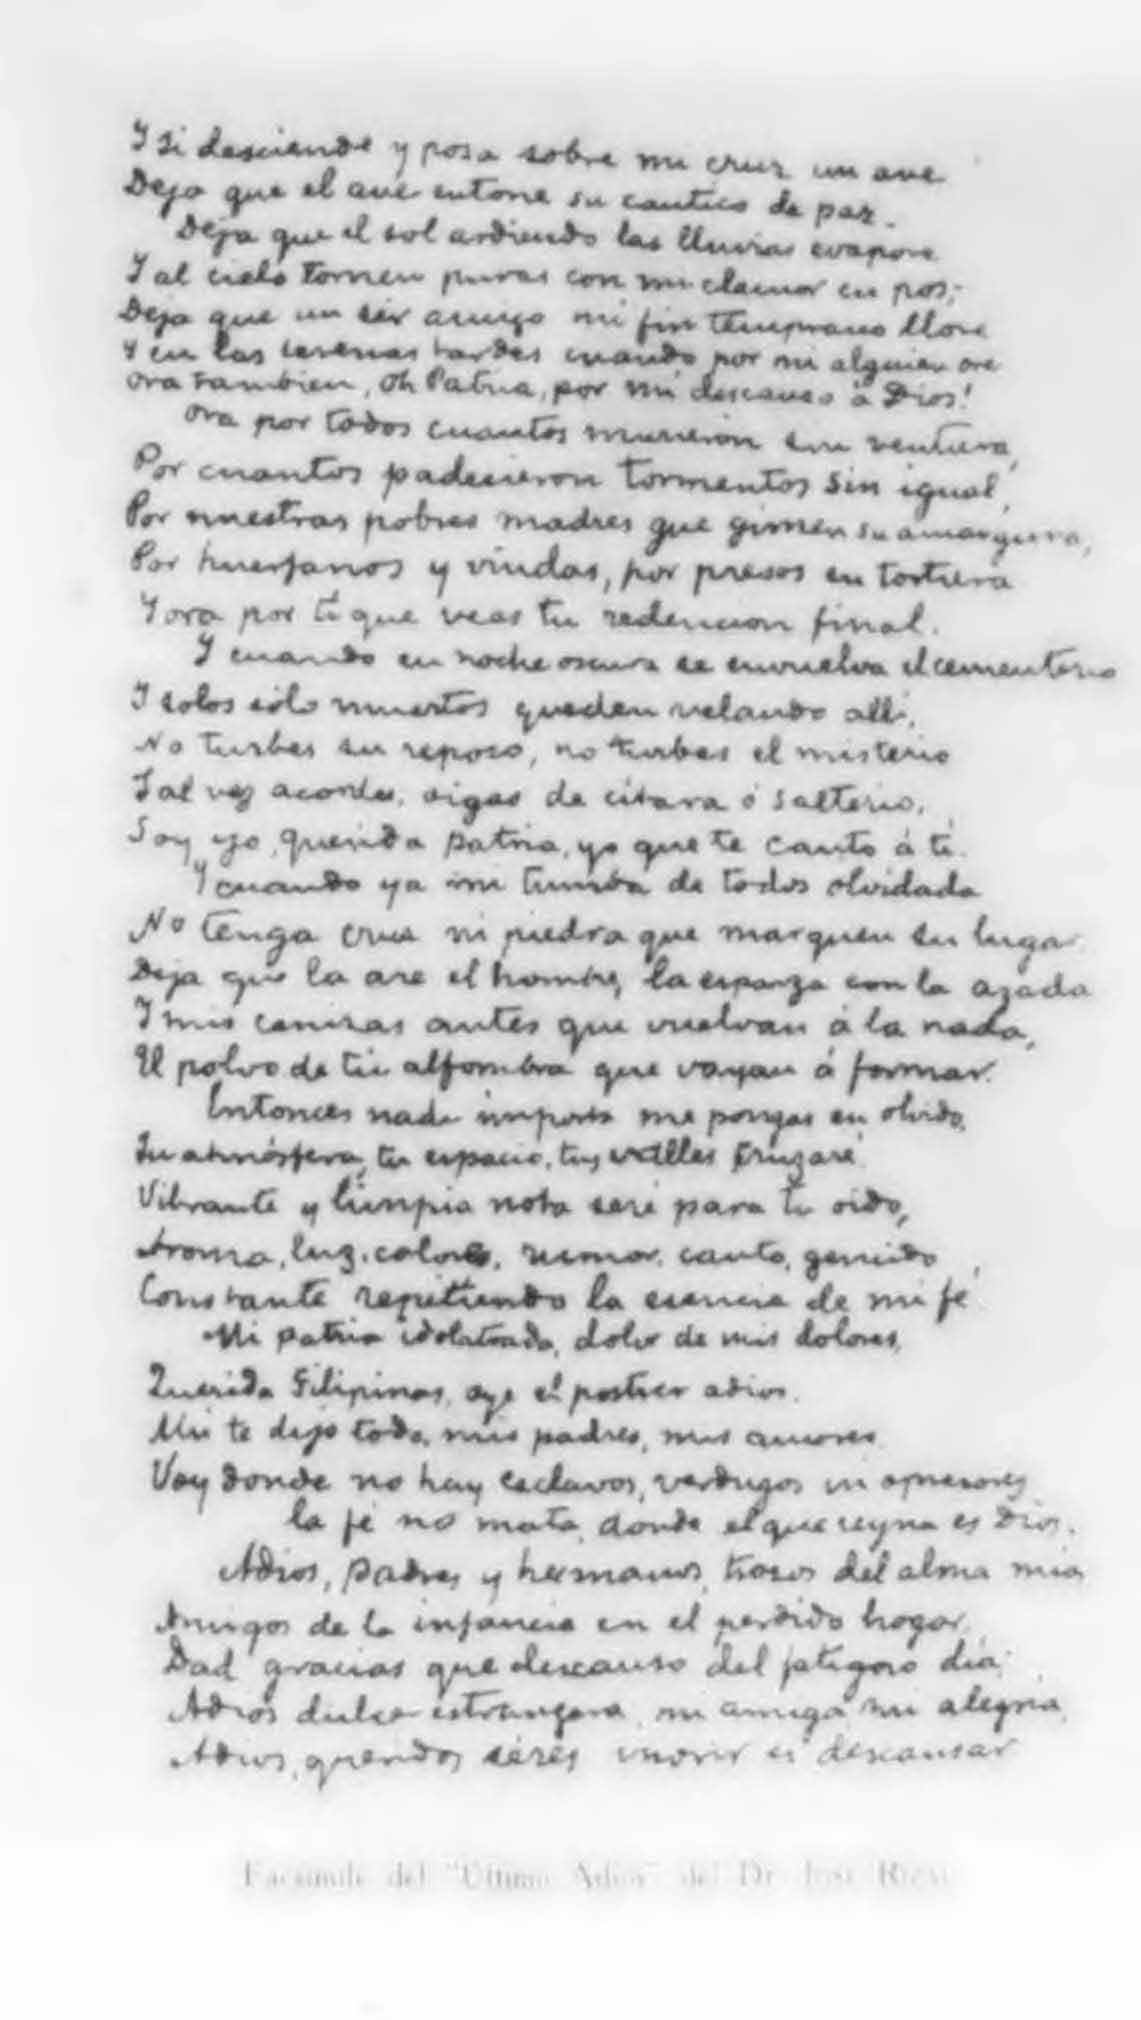 Y si desciende y posa sobre mi cruz un ave
Deja que el ave entone su cantico de paz.
Deja que el sol ardiendo las lluvias evapore
Y al cielo tornen puras con mi clamor en pos;
Deja que un sér amigo mi fin temprano llore
Y en las serenas tardes cuando por mi alguien ore
Ora tambien, Oh Patria, por mi descanso á Dios!
Ora por todos cuantos murieron sin ventura,
Por cuantos padecieron tormentos sin igual,
Por nuestras pobres madres que gimen su amargura,
Por huerfanos y viudas, por presos en tortura
Y ora por ti que veas tu redencion final.
Y cuando en noche oscura se envuelva el cementerio
Y solos sólo muertos queden velando allí,
No turbes su reposo, no turbes el misterio
Tal vez acordes oigas de citara ó salterio,
Soy yo, querida Patria, yo que te canto á ti.
Y cuando ya mi tumba de todos olvidada
No tenga cruz ni piedra que marquen su lugar
Deja que la are el hombre, la esparza con la azada
Y mis cenizas antes que vuelvan á la nada,
El polvo de tu alfombra que vayan á formar.
Entonces nada importa me pongas en olvido,
Tu atmósfera, tu espacio, tus valles cruzaré
Vibrante y limpia nota seré para tu oido,
Aroma, luz, colores, rumor, canto, gemido
Constante repitiendo la esencia de mi fé
Mi patria idolatrada, dolor de mis dolores,
Querida Filipinas, oye el postrer adios.
Ahi te dejo todo, mis padres, mis amores
Voy donde no hay esclavos, verdugos ni opresores
la fé no mata, donde el que reyna es Dios.
Adios, padres y hermanos, trozos del alma mia,
Amigos de la infancia en el perdido hogar,
Dad gracias que descanso del fatigoso dia;
Adios dulce estrangera, mi amiga, mi alegria,
Adios, queridos séres morir es descansar
Facsimile del "Ultimo Adios" del Dr. José Rizal